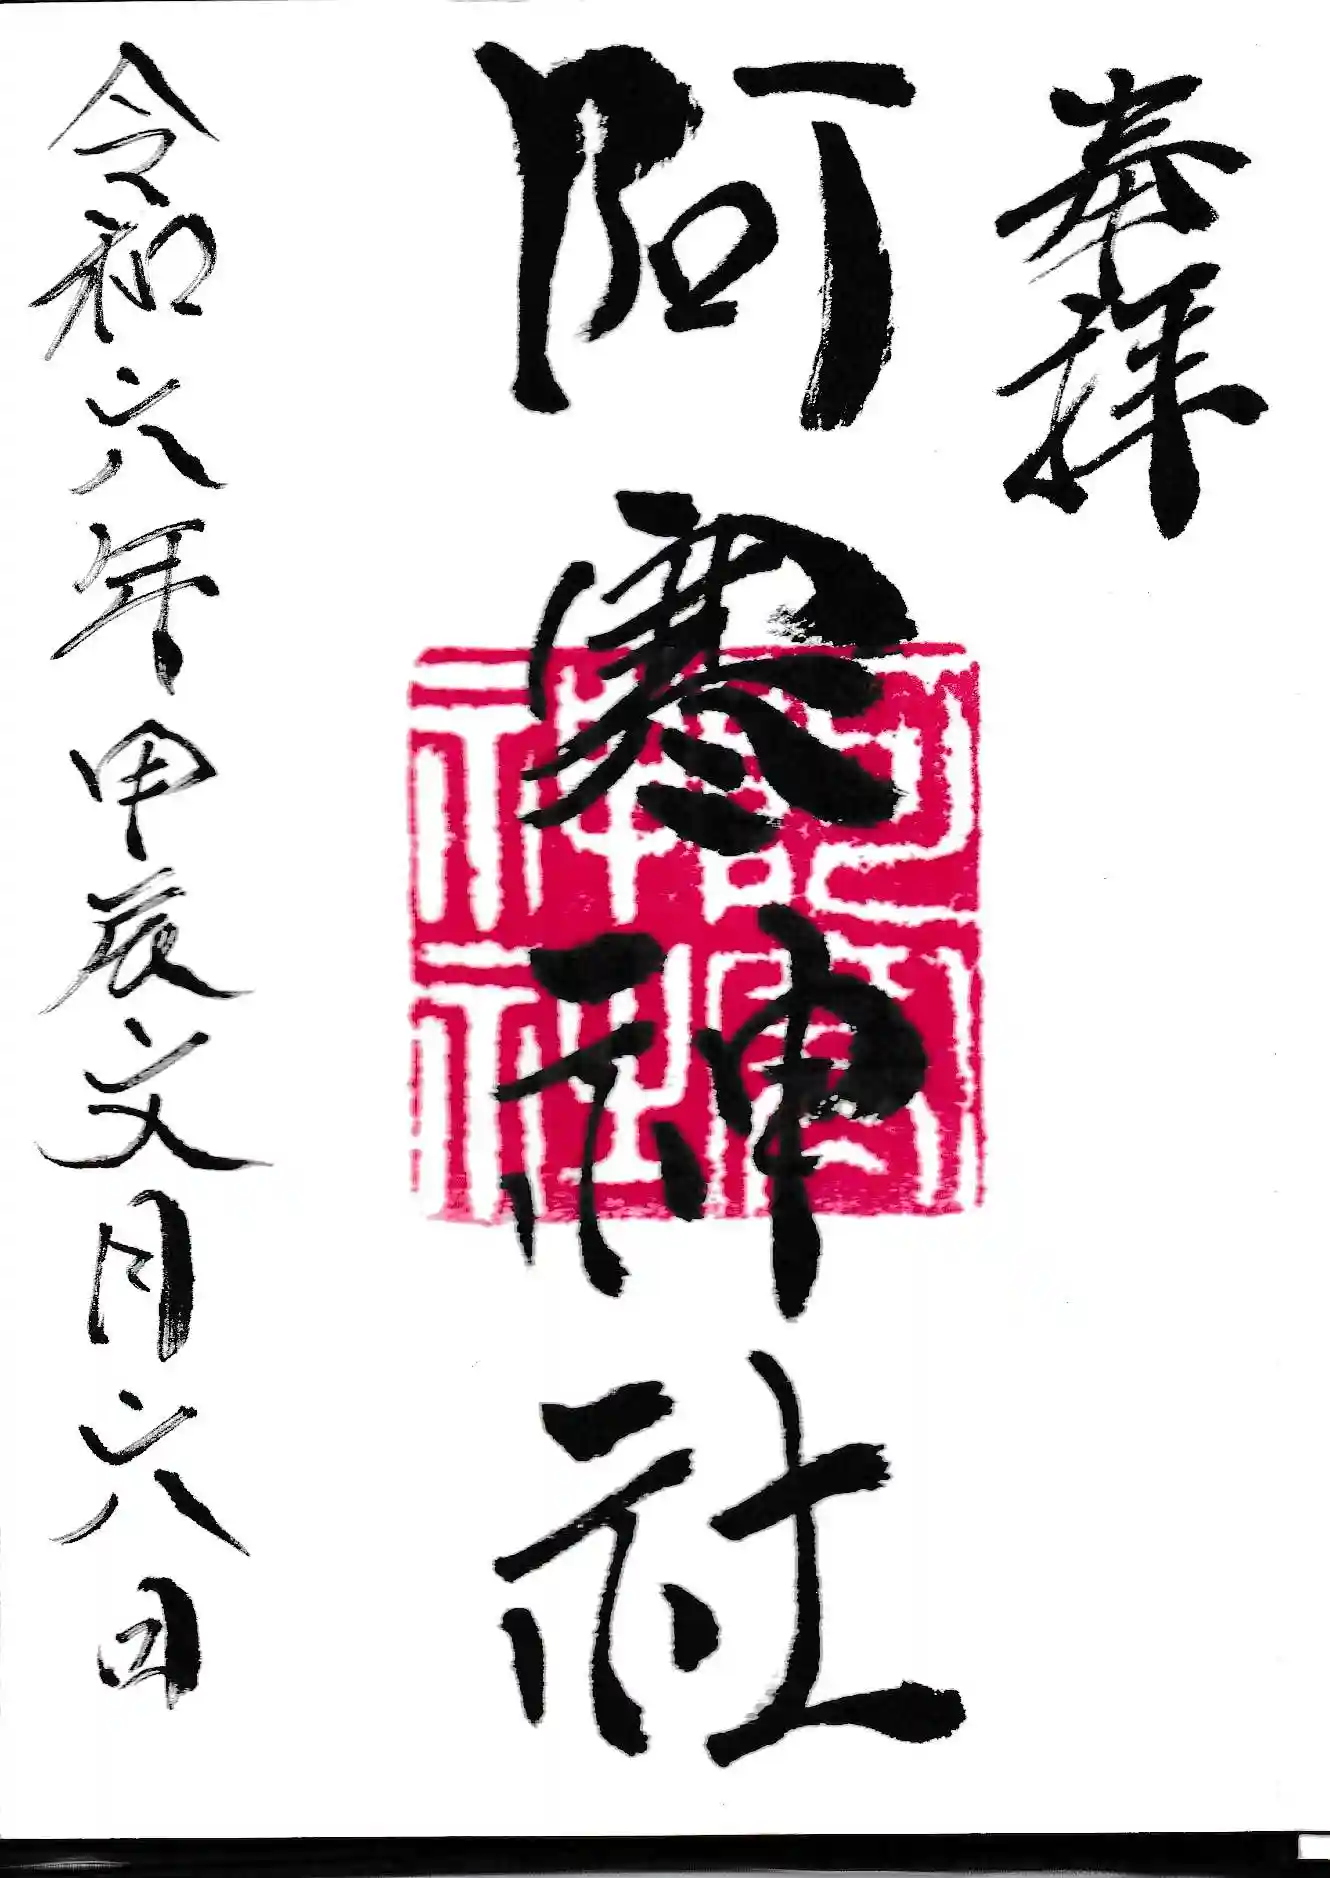 奉拝
阿寒神社
阿寒神社
令和六年甲辰文月六日